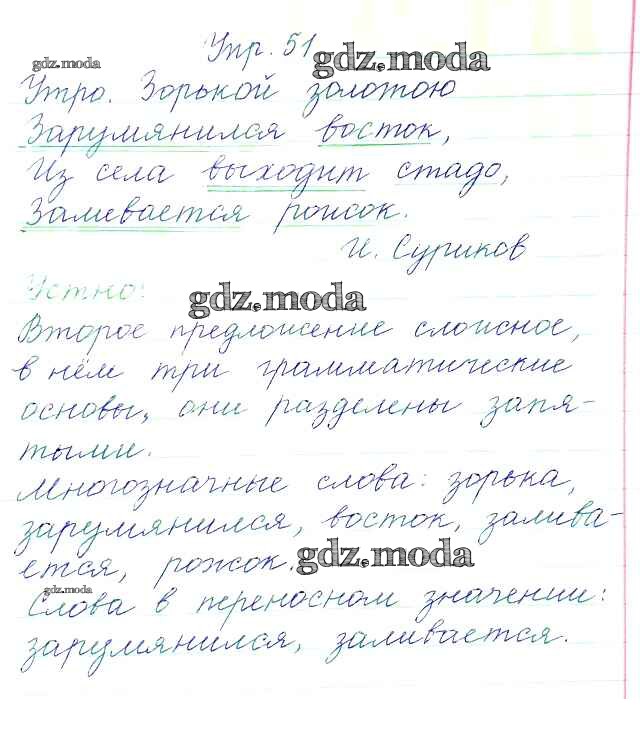 Упр. 51
gdz.moda
gdz.moda
Утро. Зорькой золотою
Зарумянился восток,
Из села выходит стадо,
Заливается рожок.
И. Суриков
Устно:
gdz.moda
Второе предложение сложное,
в нём три грамматические
основы, они разделены запя-
тыми.
Многозначные слова: зорька,
зарумянился, восток, залива-
ется, рожок.
gdz.moda
gdz.moda
Слова в переносном значении:
зарумянился, заливается.